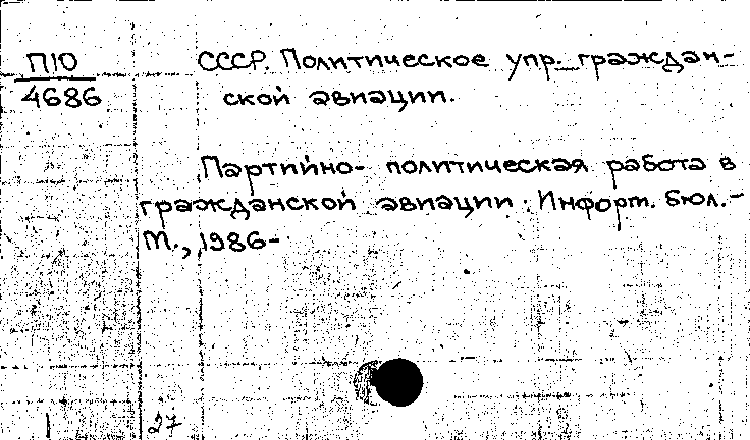 П10
4686
СССР. Политическое упр. граждан-
ской авиации.
Партийно- политическая работа в
гражданской авиации: Информ. бюл.-
М., 1986-
27